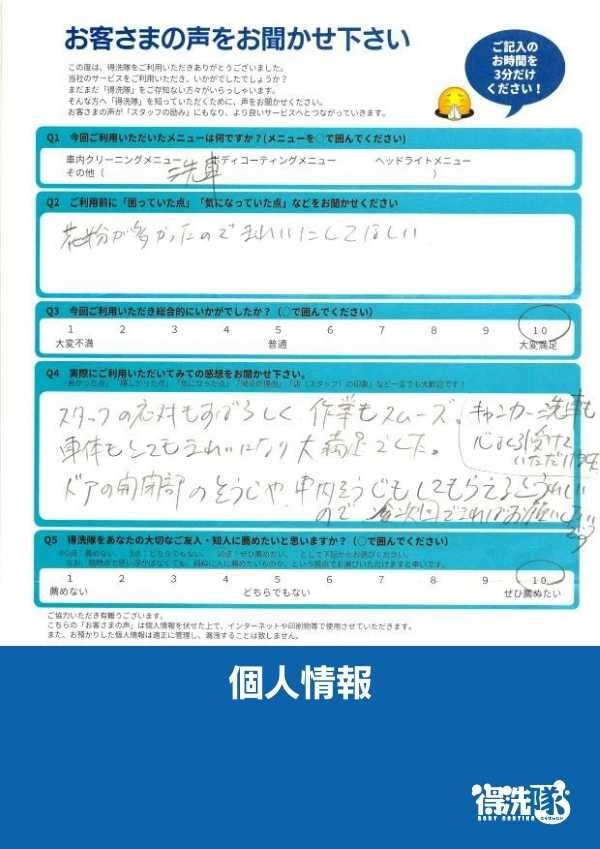 お客さまの声をお聞かせ下さい
ご記入の
お時間を
3分だけ
ください！
この度は、得洗隊をご利用いただきありがとうございました。
当社のサービスをご利用いただき、いかがでしたでしょうか？
まだまだ「得洗隊」をご存知ない方々がいらっしゃいます。
そんな方へ「得洗隊」を知っていただくために、声をお聞かせください。
お客さまの声が「スタッフの励み」にもなり、より良いサービスへとつながっていきます。
Q1 今回ご利用いただいたメニューは何ですか？(メニューを○で囲んでください)
車内クリーニングメニュー ボディコーティングメニュー ヘッドライトメニュー
その他（ 洗車 ）
Q2 ご利用前に「困っていた点」「気になっていた点」などをお聞かせください
花粉が多かったのできれいにしてほしい
Q3 今回ご利用いただき総合的にいかがでしたか？（○で囲んでください）
1 2 3 4 5 6 7 8 9 10
大変不満 普通 大変満足
Q4 実際にご利用いただいてみての感想をお聞かせ下さい。
「良かった点」「嬉しかった点」「気になった点」
スタッフの応対もすばらしく 作業もスムーズ。
車体もとてもきれいになり大満足でした。
キャンカー洗車も
心よく引受けて
いただけます
ドアの開閉部のそうじや、車内そうじもしてもらえるとうれしい
ので 次回できればお願いしたい
です
Q5 得洗隊をあなたの大切なご友人・知人に薦めたいと思いますか？（○で囲んでください）
1 2 3 4 5 6 7 8 9 10
薦めない どちらでもない ぜひ薦めたい
ご協力いただき有難うございます。
こちらの「お客さまの声」は個人情報を伏せた上で、インターネットや印刷物等で使用させていただきます。
また、お預かりした個人情報は適正に管理し、漏洩することは致しません。
個人情報
得洗隊
BODY COATING